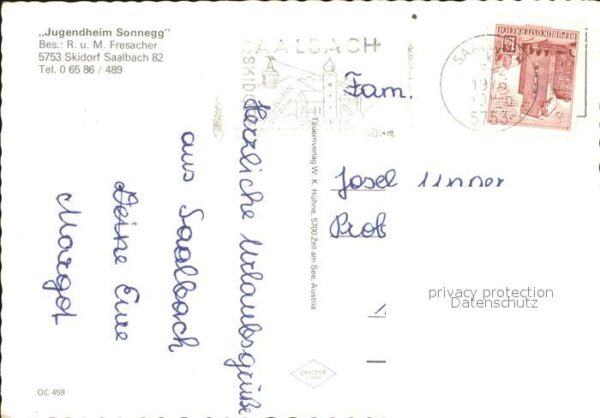 „Jugendheim Sonnegg"
Bes.: R. u. M. Fresacher
5753 Skidorf Saalbach 82
Tel. 0 65 86 / 489
SAALBACH
REPUBLIK ÖSTERREICH
5753
Fam.
Josef
Herzliche Urlaubsgrüße
aus Saalbach
Deine Eure
Margot
Tauernverlag W. K. Hühne, 5700 Zell am See, Austria
privacy protection
Datenschutz
OC 459